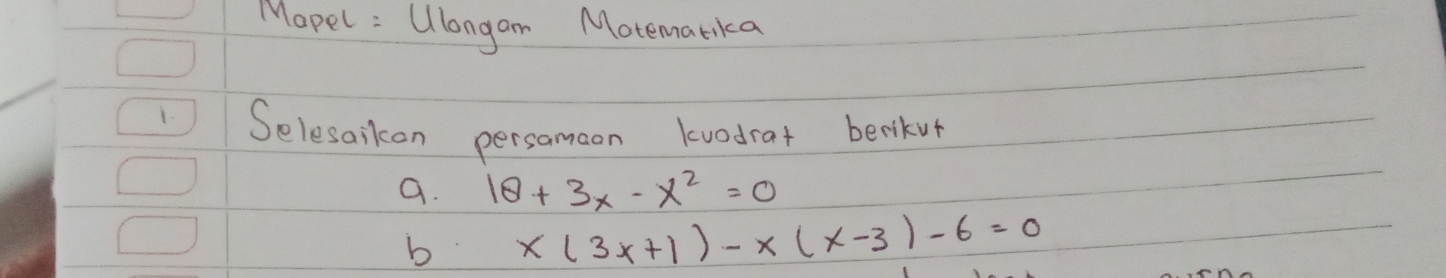 Mapel : Ulangan Matematika
1. Selesaikan persamaan kuadrat berikut
a. 18 + 3x - x² = 0
b. x (3x+1) - x (x-3) - 6 = 0